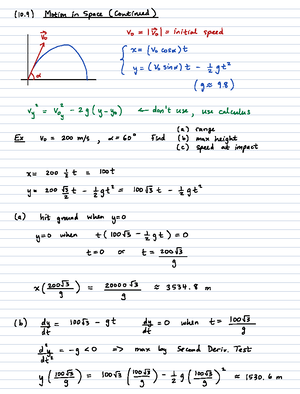 (10.9) Motion in Space (Continued)
v₀ = |v⃗₀| = initial speed
v⃗₀
α
{ x = (v₀ cosα) t
y = (v₀ sinα) t − 1/2 g t²
(g ≈ 9.8)
v_y² = v₀y² − 2g (y − y₀) ← don't use, use calculus
Ex v₀ = 200 m/s, α = 60° Find (a) range
(b) max height
(c) speed at impact
x = 200 1/2 t = 100t
y = 200 √3/2 t − 1/2 g t² = 100√3 t − 1/2 g t²
(a) hit ground when y=0
y=0 when t (100√3 − 1/2 g t) = 0
t=0 or t = 200√3/g
x(200√3/g) = 20000√3/g ≈ 3534.8 m
(b) dy/dt = 100√3 − gt dy/dt = 0 when t = 100√3/g
d²y/dt² = −g < 0 => max by Second Deriv. Test
y(100√3/g) = 100√3 (100√3/g) − 1/2 g (100√3/g)² ≈ 1530.6 m